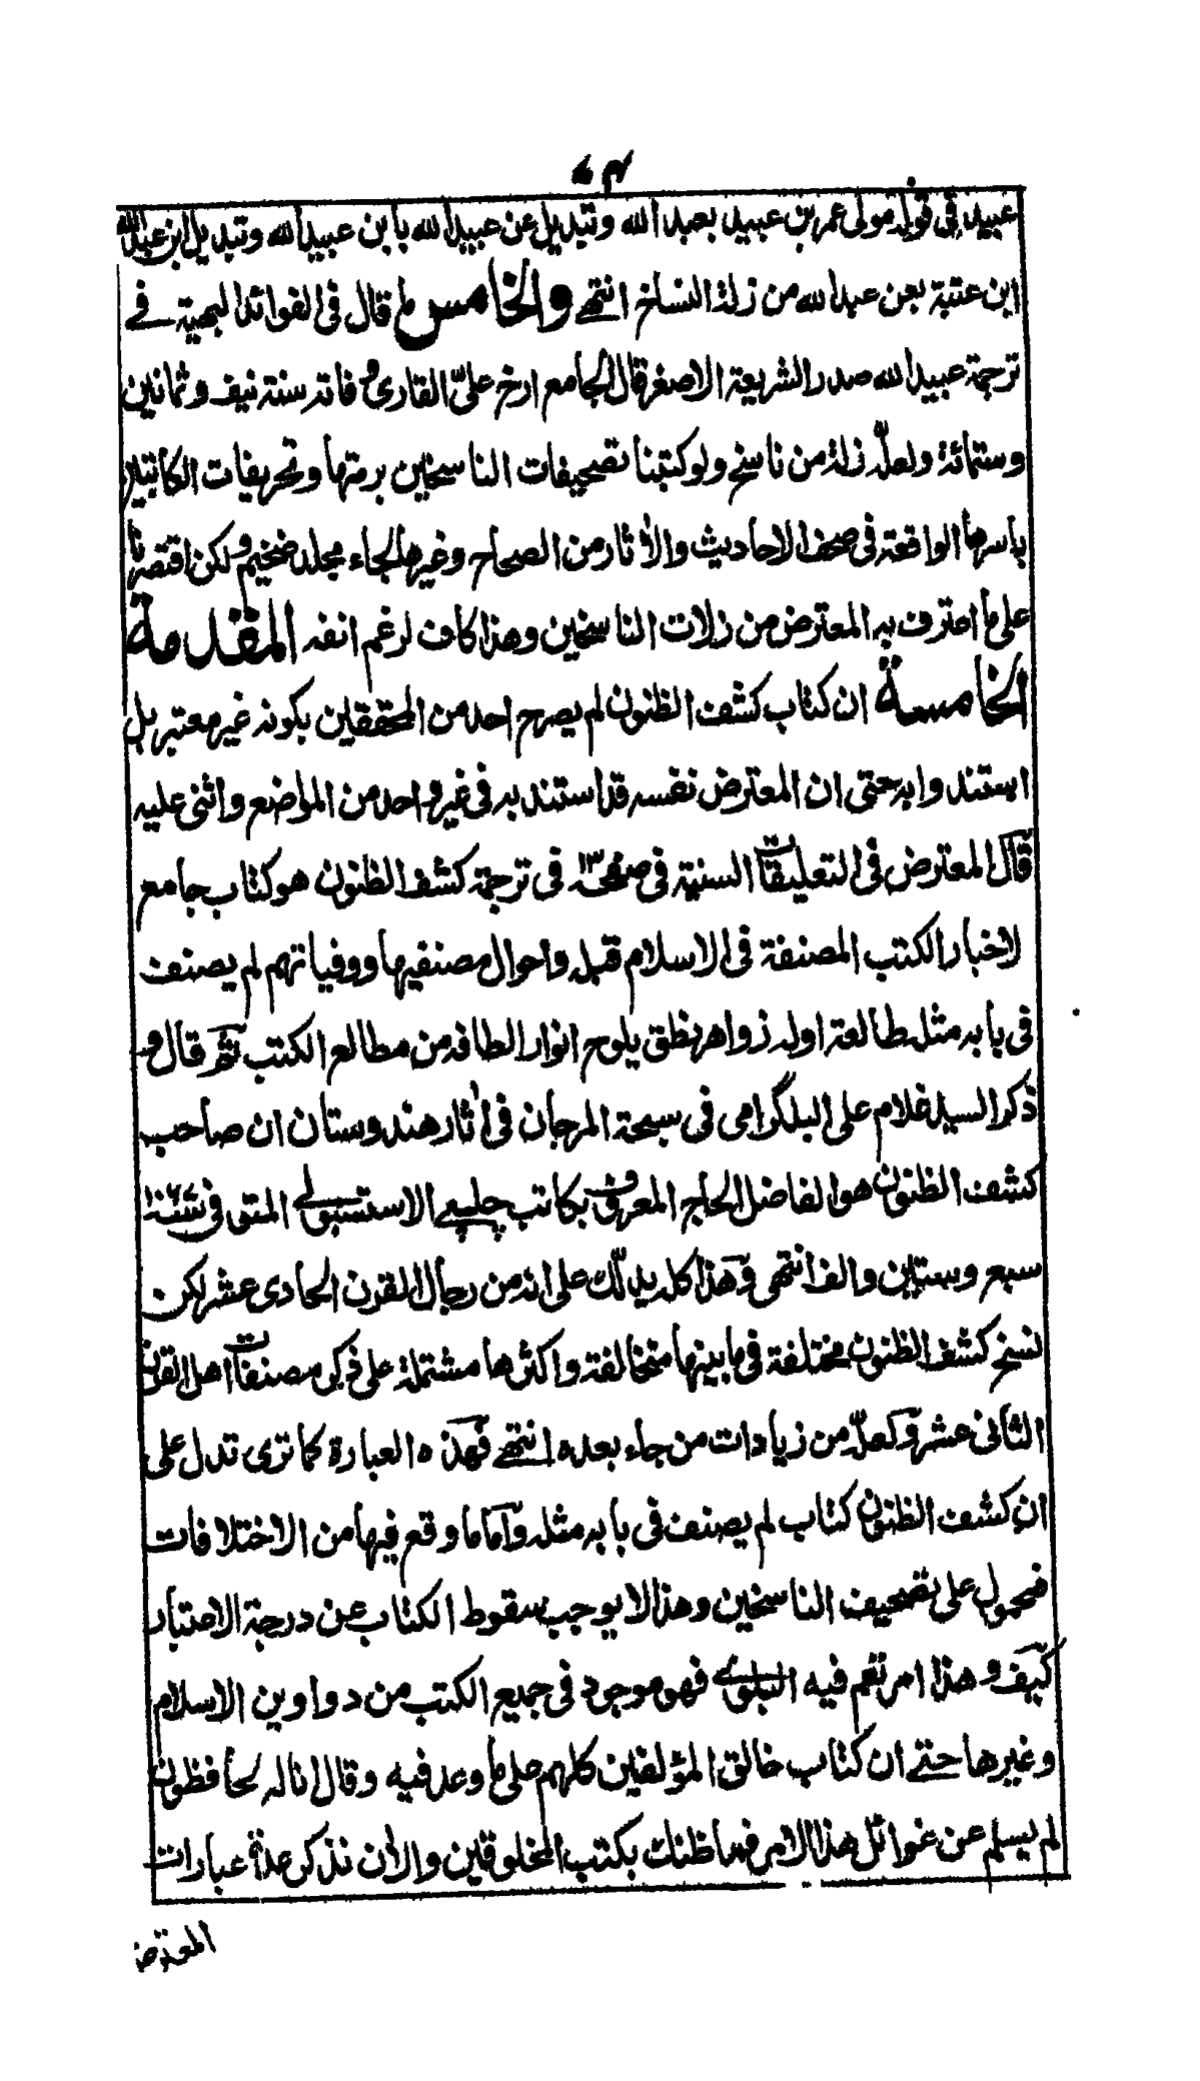 عبيد في قوله مولى عمر بن عبيد بعبد الله وتبديل عن عبيد الله بابن عبيد الله وتبديل ابن عبد الله
ابن عتبة بعن عبد الله من زلة النساخ انتهے والخامس ما قال في الفوائد البهية فے
ترجمة عبيد الله صدر الشريعة الاصغر قال الجامع ارخ علىّ القارى وفاته سنة نيف وثمانين
وستمائة ولعلّه زلة من ناسخ ولو كتبنا تصحيفات الناسخين برمتها وتحريفات الكاتبين
باسرها الواقعة في صحف الاحاديث والآثار من الصحاح وغيرها لجاء مجلد ضخيم ولكن اقتصرنا
على ما اعترف به المعترض من زلات الناسخين وهذا كاف لرغم انفه المقدمة
الخامسة ان كتاب كشف الظنون لم يصرح احد من المحققين بكونه غير معتبر بل
استندوا به حتى ان المعترض نفسه قد استند به في غير واحد من المواضع واثنى عليه
قال المعترض في التعليقات السنية في صفحة ١٣ في ترجمة كشف الظنون هو كتاب جامع
لاخبار الكتب المصنفة في الاسلام قبله واحوال مصنفيها ووفياتهم لم يصنف
في بابه مثله طالعته اوله زواهر نطق يلوح انوار الطافه من مطالع الكتب ثم قال و
ذكر السيد غلام على البلگرامى في سبحة المرجان في آثار هندوستان ان صاحب
كشف الظنون هو الفاضل الحاج المعروف بكاتب چلپے الاستنبولے المتوفى سنة ١٠٦٧
سبع وستين والف انتهى وهذا كله يدلّك على انه من رجال القرن الحادى عشر لكن
نسخ كشف الظنون مختلفة فيما بينها متخالفة واكثرها مشتملة على ذكر مصنفات اهل القرن
الثانى عشر ولعلّه من زيادات من جاء بعده انتهے فهذه العبارة كما ترى تدل على
ان كشف الظنون كتاب لم يصنف في بابه مثله واما ما وقع فيها من الاختلافات
فمحمول على تصحيف الناسخين وهذا لا يوجب سقوط الكتاب عن درجة الاعتبار
كيف وهذا امر تعم فيه البلوے فهو موجود في جميع الكتب من دواوين الاسلام
وغيرها حتے ان كتاب خالق المؤلفين كلهم على ما وعد فيه وقال انا له لحافظون
لم يسلم عن غوائل هذا الامر فما ظنك بكتب المخلوقين والآن نذكر عدة عبارات
المعترض